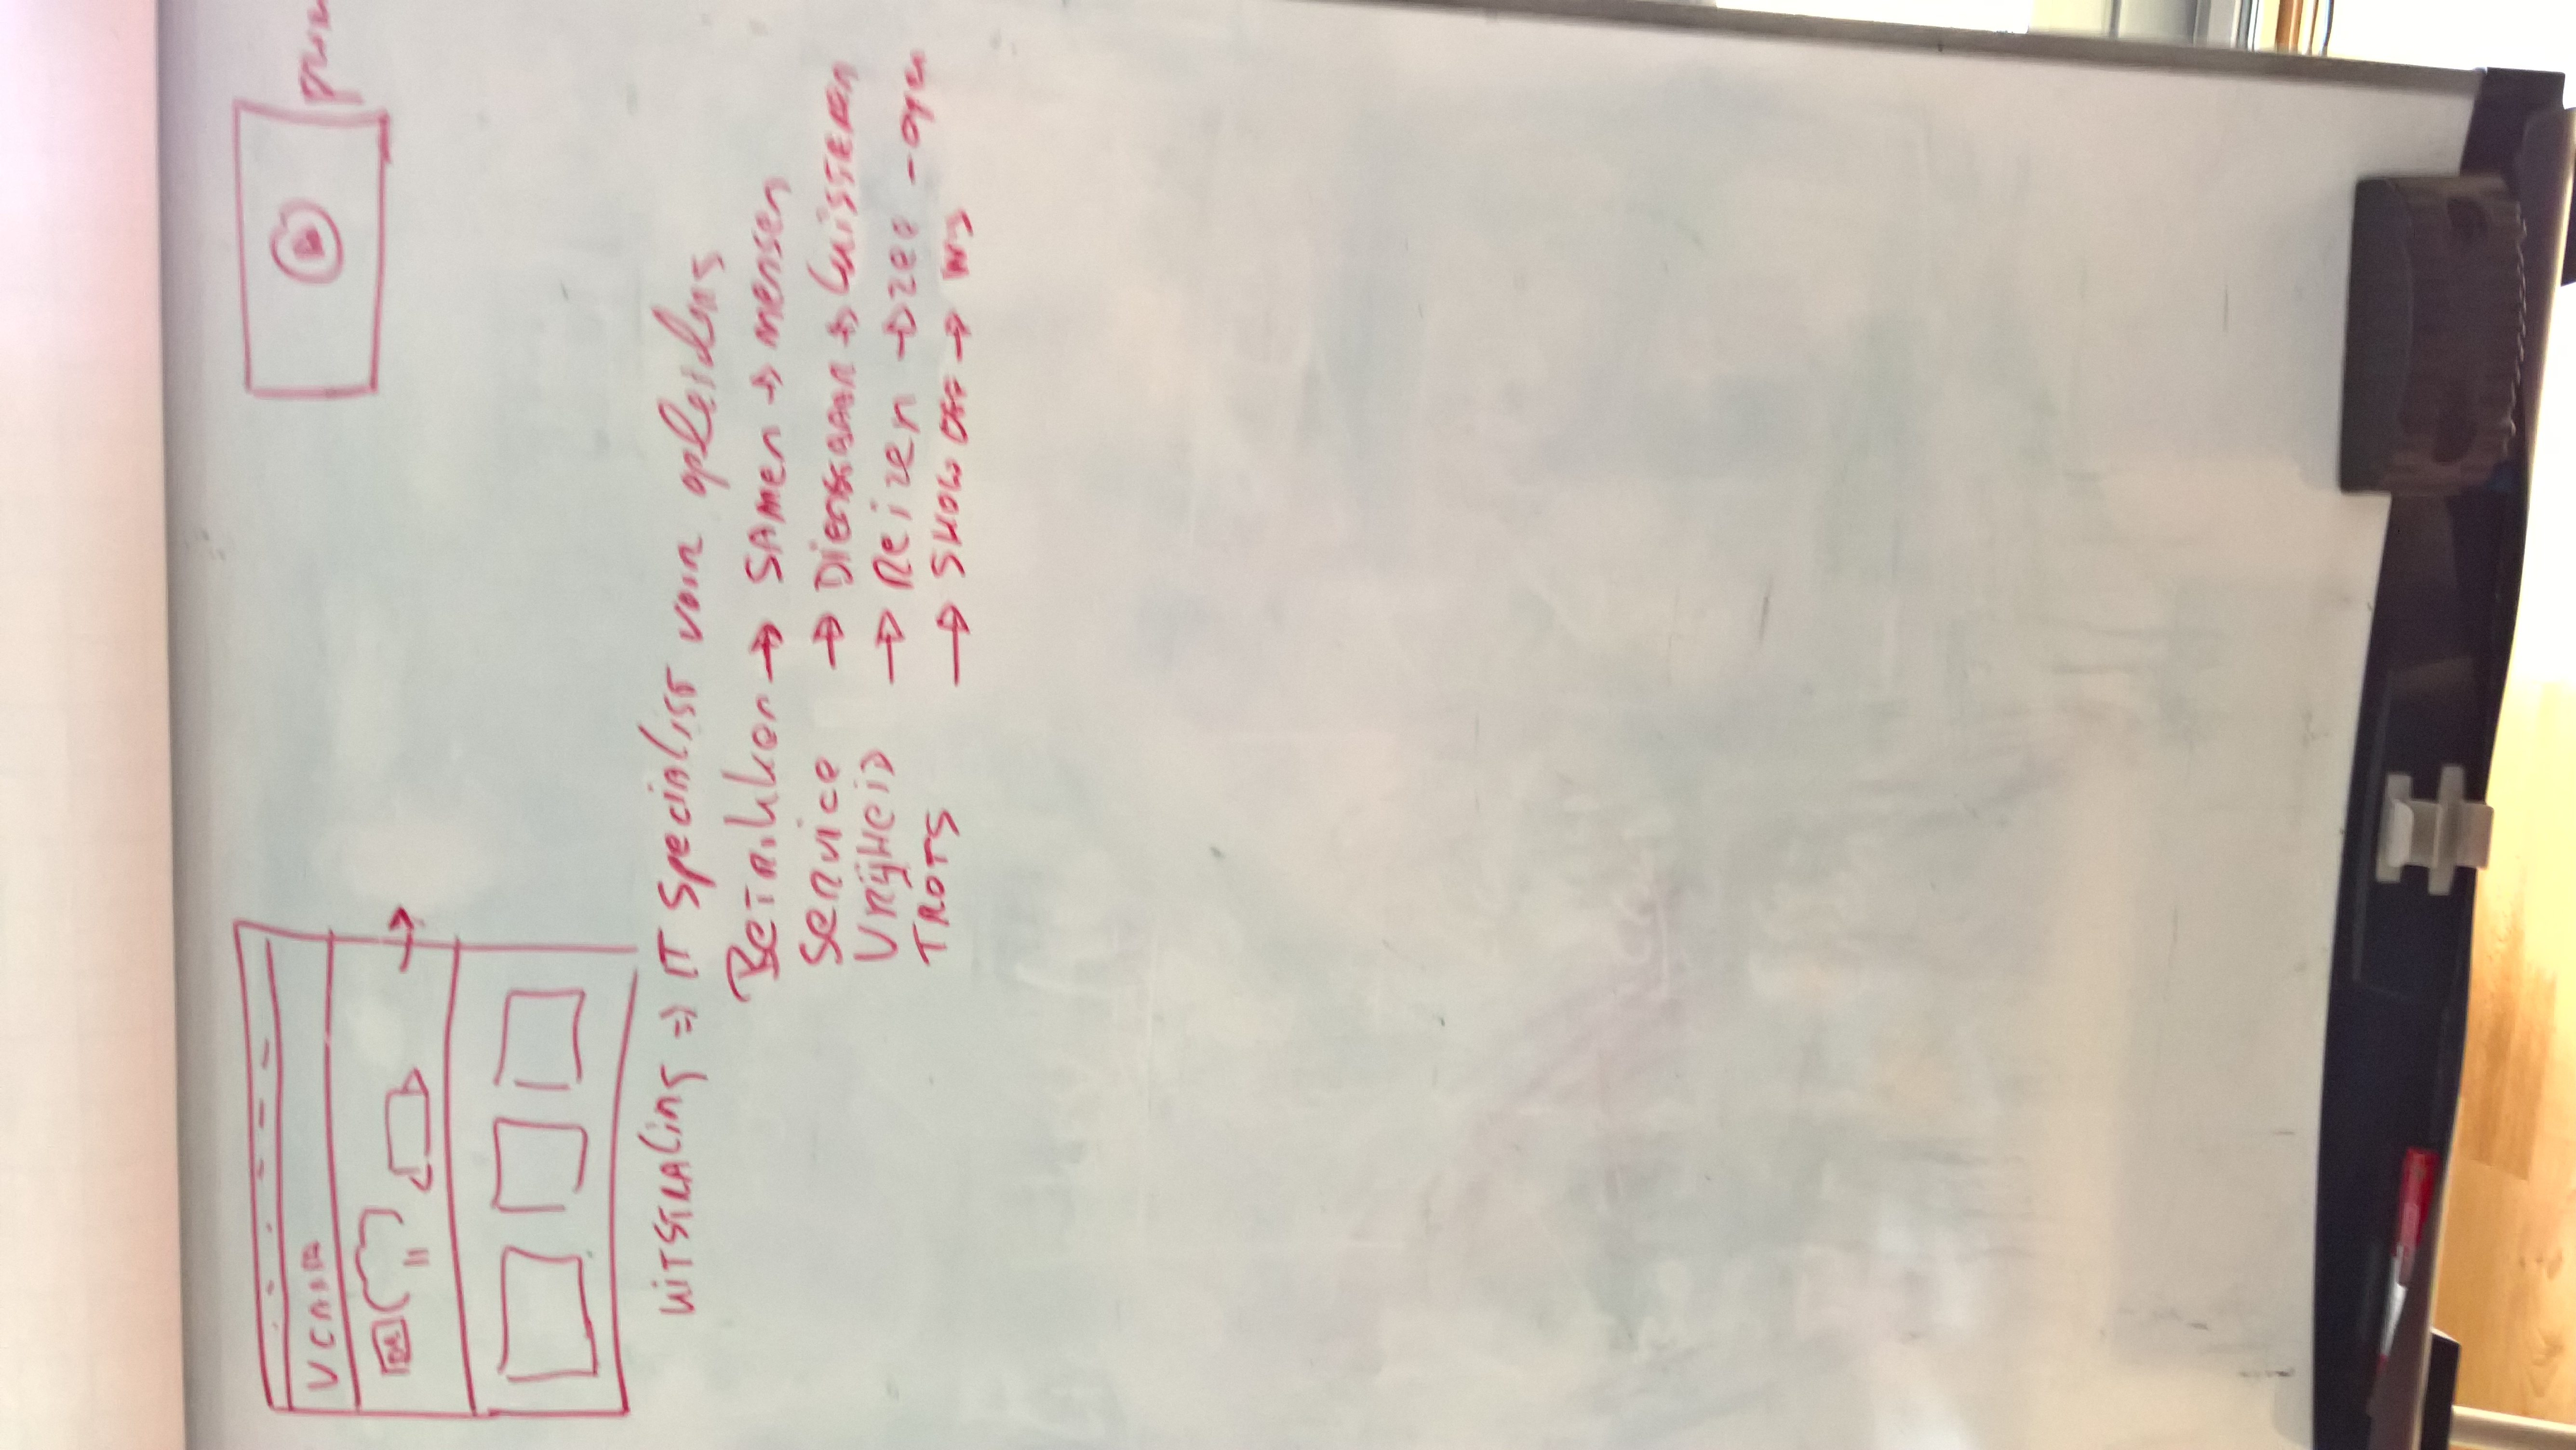 UITSTRALING => IT SPECIALIST VOOR opleiding
BETROKKEN → SAMEN → MENSEN
SERVICE → DIENSBAAR → LUISTEREN
VRIJHEID → Reizen → zee
TROTS → SHOW OFF →